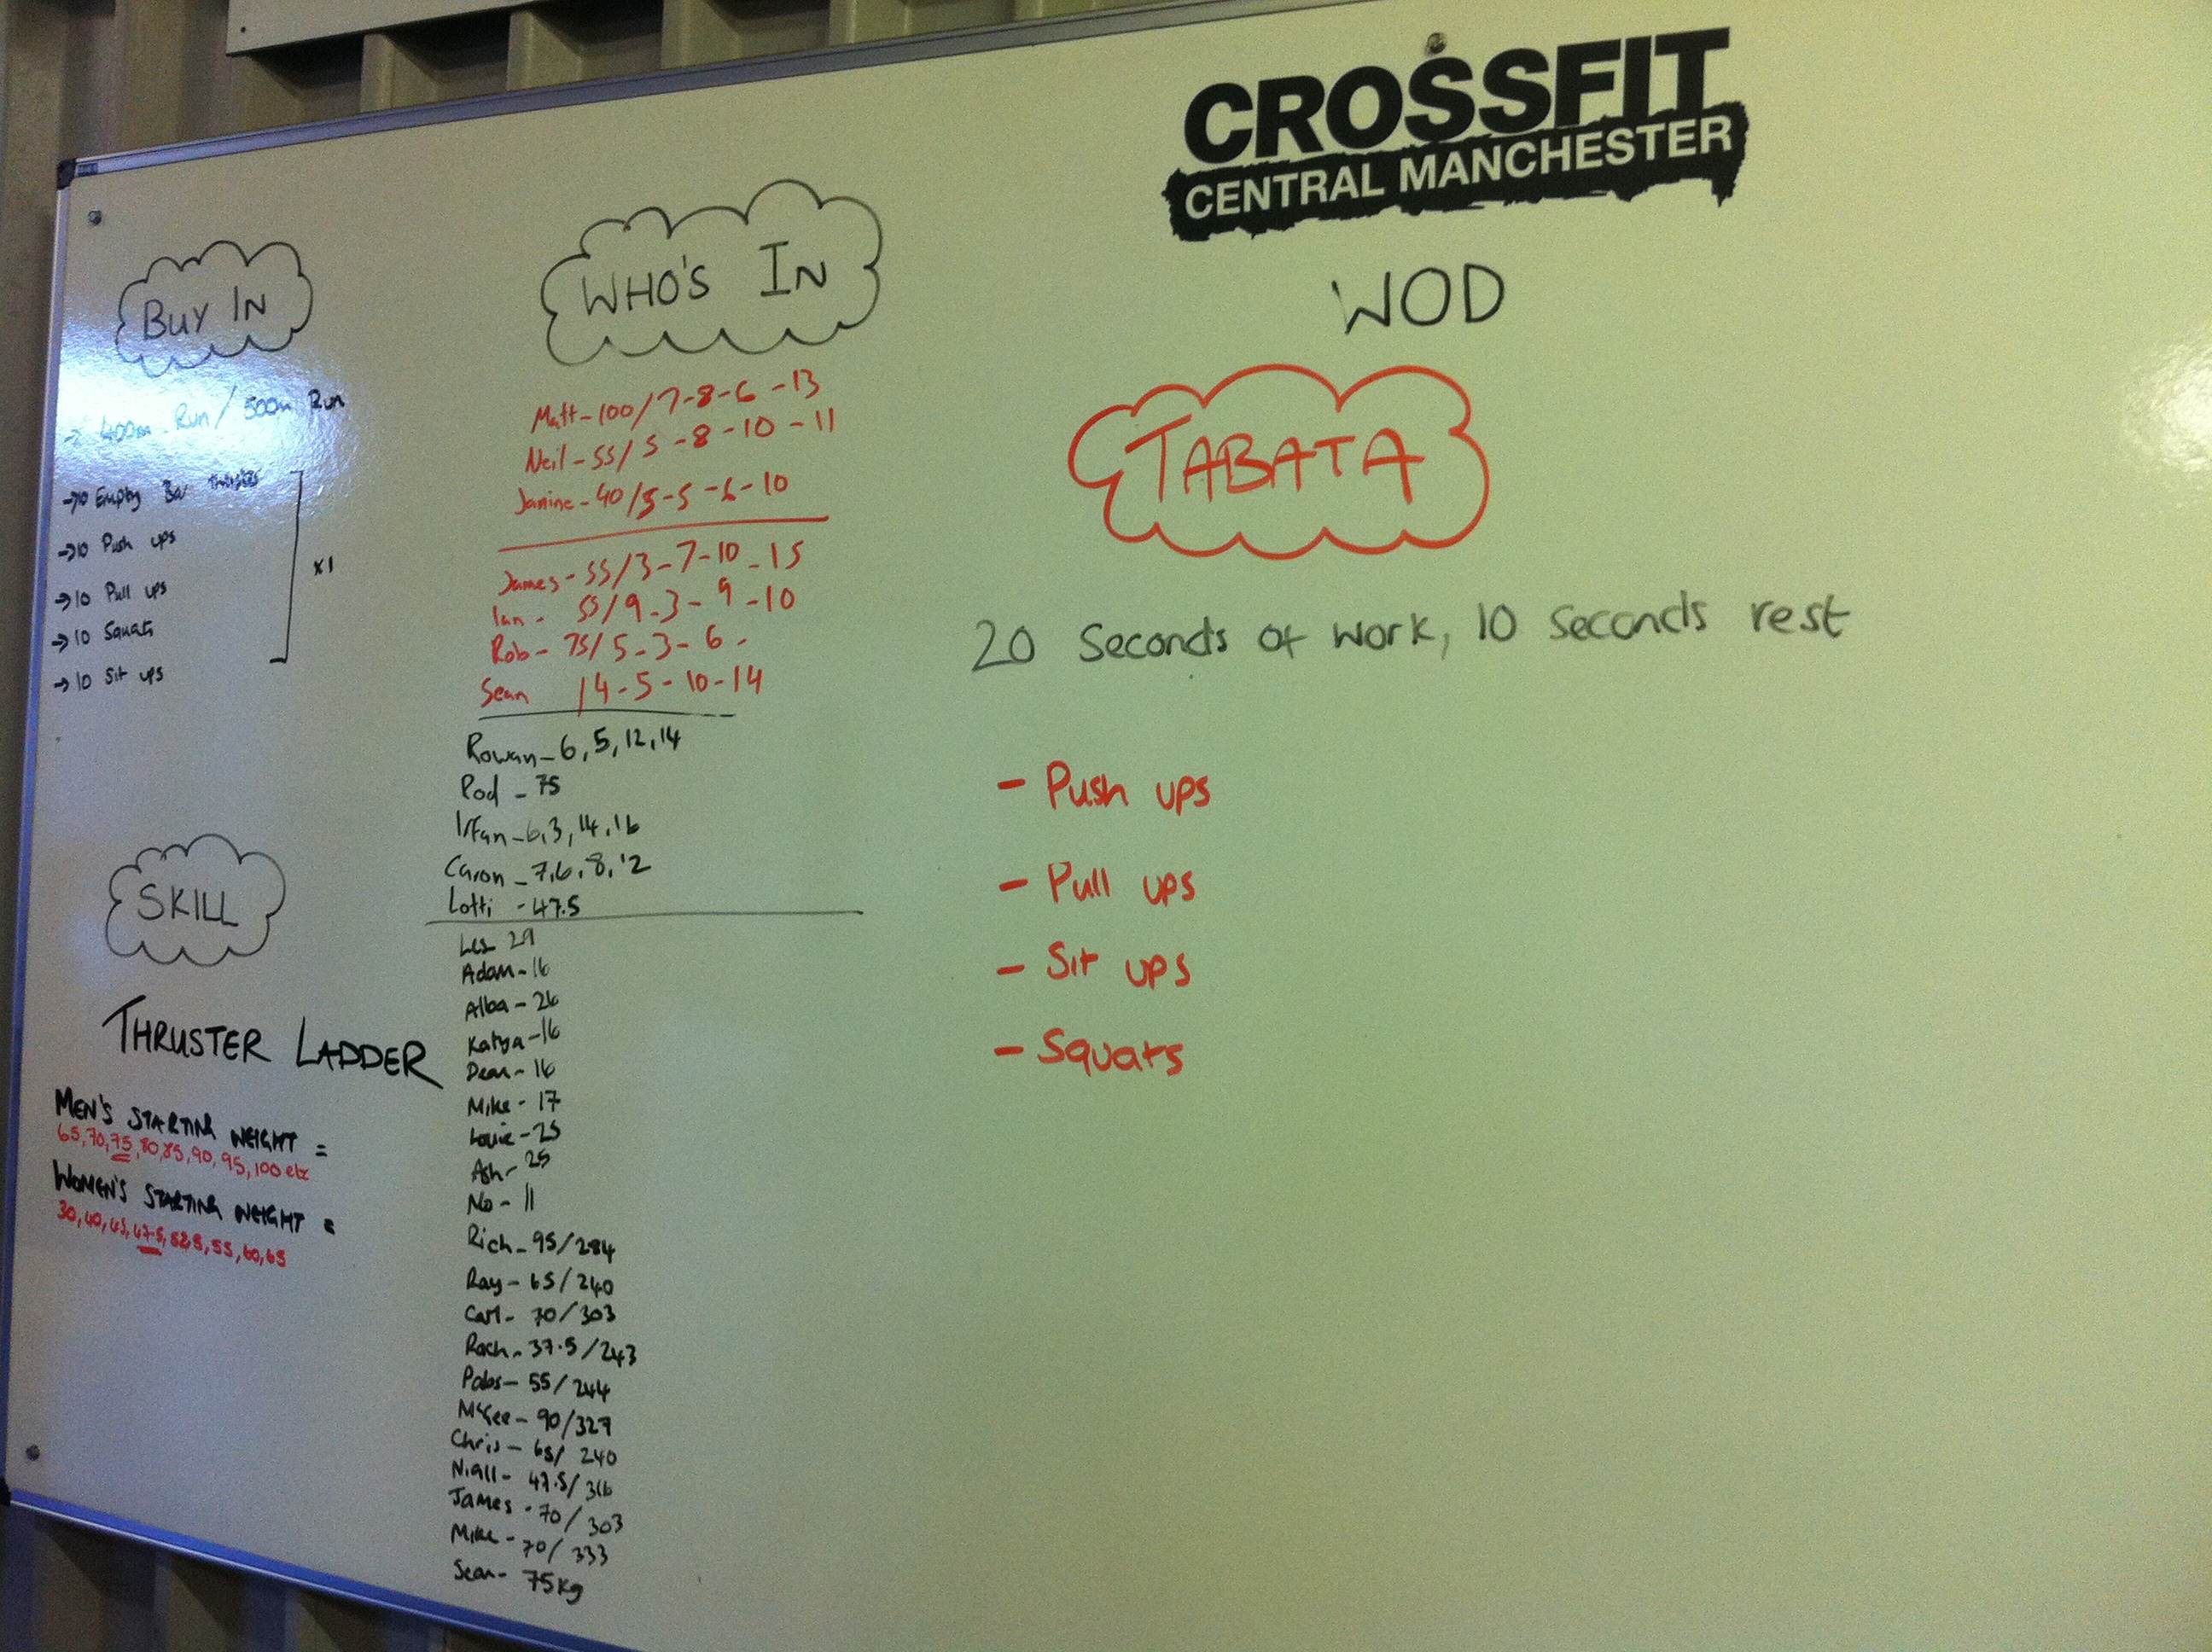 CROSSFIT
CENTRAL MANCHESTER
BUY IN
→ 400m Run / 500m Run
→10 Empty Bar
→10 Push ups
→10 Pull ups
→10 Squats
→10 Sit ups
x1
SKILL
THRUSTER LADDER
MEN'S STARTING WEIGHT =
65,70,75,80,85,90,95,100 etc
WOMEN'S STARTING WEIGHT =
30,40,45,47.5,52.5,55,60,65
WHO'S IN
Matt-100/7-8-6-13
Neil-55/5-8-10-11
Janine-40/5-5-6-10
James-55/3-7-10-15
Ian- 55/9-3-9-10
Rob-75/5-3-6-
Sean /4-5-10-14
Rowan-6,5,12,14
Rod-75
Irfan-6,3,14,16
Caron-7,6,8,12
Lotti -47.5
Les 29
Adam-16
Alba-26
Katya-16
Dean-16
Mike-17
Louie-25
Ash-25
No-11
Rich-95/284
Ray-65/240
Carl-70/303
Rach-37.5/243
Pabs-55/244
McGee-90/327
Chris-65/240
Niall-47.5/316
James-70/303
Mike-70/333
Sean-75kg
WOD
TABATA
20 Seconds of work, 10 seconds rest
- Push ups
- Pull ups
- Sit ups
- Squats